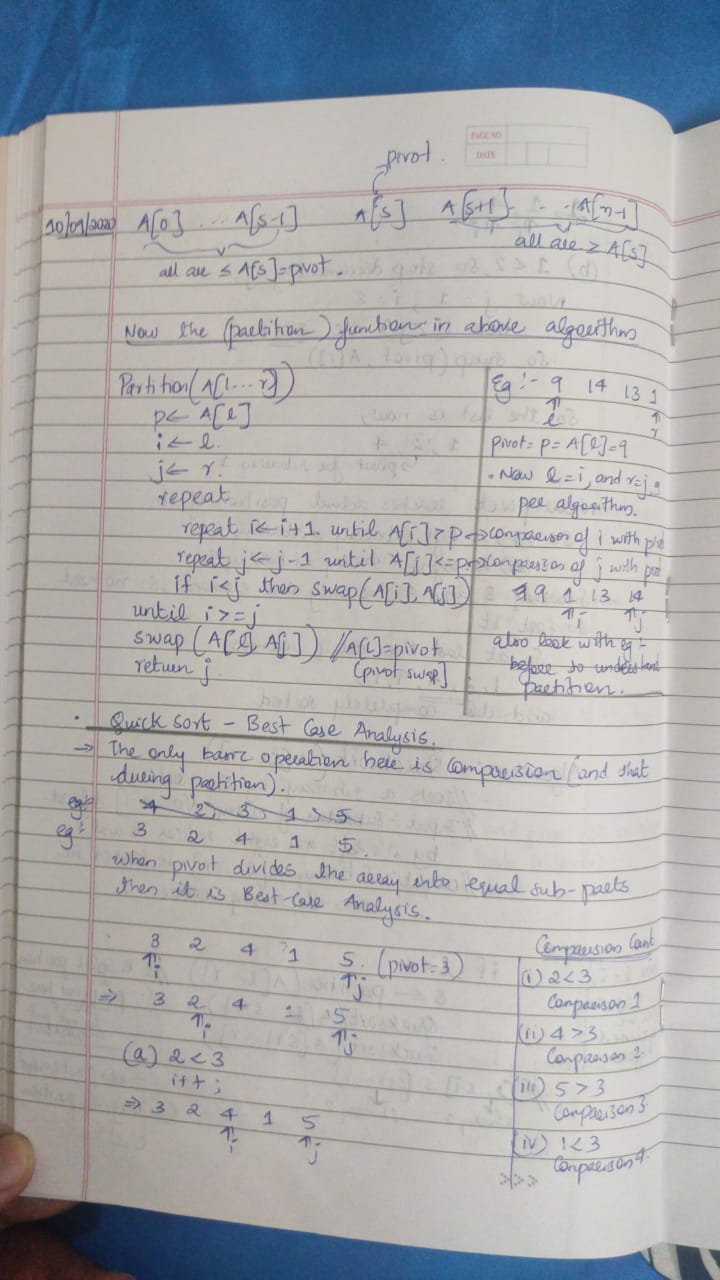 PAGE NO.
DATE
pivot.
10/09/2020 A[0] ... A[s-1] A[s] A[s+1] . . . A[n-1]
all are ≥ A[s]
all are ≤ A[s]=pivot.
Now the (partition) function in above algorithm
Partition(A[l...r])
p← A[l]
i← l.
j← r.
repeat
repeat i← i+1. until A[i]>p => comparison of i with pivot
repeat j← j-1 until A[j]<=p => comparison of j with pivot
if i<j then swap(A[i], A[j])
until i>=j
swap (A[l], A[j]) //A[l]=pivot
return j. (pivot swap]
Eg :- 9 14 13 1
↑ ↑
l r
pivot = p = A[l] = 9
• Now l=i, and r=j,
per algorithm.
9 1 13 14
↑i ↑j
also look with eg
before to understand
partition.
• Quick sort - Best Case Analysis.
→ The only basic operation here is Comparision (and that
during partition).
eg:- 4 2 3 1 5
eg:- 3 2 4 1 5.
when pivot divides the array into equal sub-parts
then it is Best-Case Analysis.
3 2 4 1 5. (pivot=3)
↑i ↑j
=> 3 2 4 1 5
↑i ↑j
(a) 2<3
i++;
=> 3 2 4 1 5
↑i ↑j
Comparision Count
(i) 2<3
Comparison 1
(ii) 4>3
Comparison 2.
(iii) 5>3
Comparison 3.
(iv) 1<3
Comparison 4.
>>>